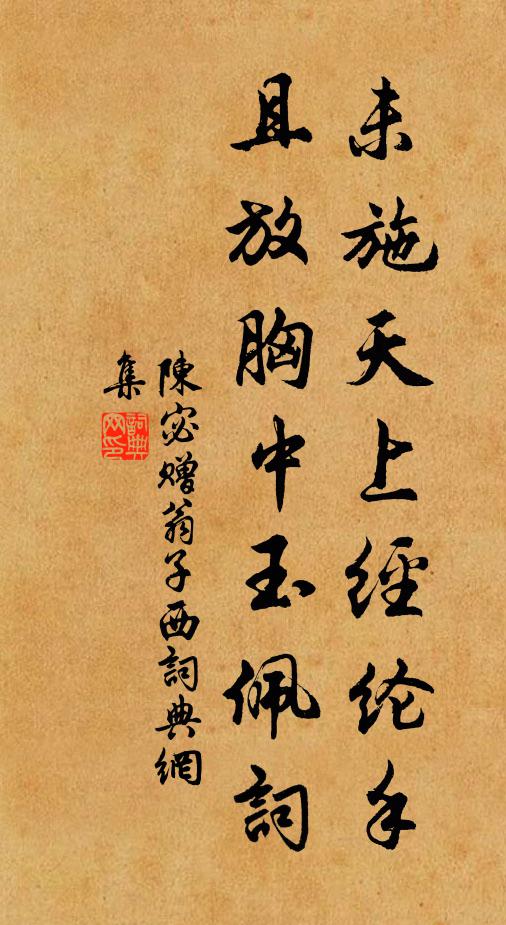 未施天上經纶手
且放胸中玉佩詞
陳宓赠翁子西詞典網
集
詞典网印